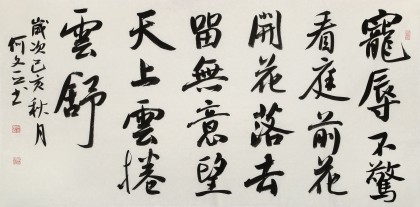 寵辱不驚
看庭前花
開花落去
留無意望
天上雲捲
雲舒
歲次己亥秋月
何文